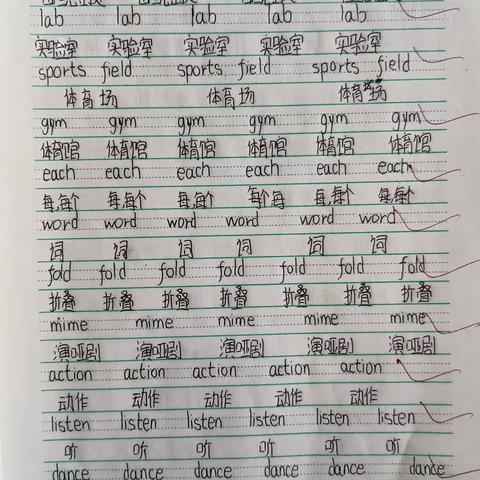 lab lab lab lab lab
实验室 实验室 实验室 实验室 实验室
sports field sports field sports field
体育场 体育场 体育场
gym gym gym gym gym gym
体育馆 体育馆 体育馆 体育馆 体育馆 体育馆
each each each each each each
每,每个 每,每个 每,每个 每个每 每,每个 每,每个
word word word word word word
词 词 词 词 词 词
fold fold fold fold fold fold fold
折叠 折叠 折叠 折叠 折叠 折叠 折叠
mime mime mime mime mime
演哑剧 演哑剧 演哑剧 演哑剧 演哑剧
action action action action action
动作 动作 动作 动作 动作
listen listen listen listen listen listen
听 听 听 听 听 听
dance dance dance dance dance dance